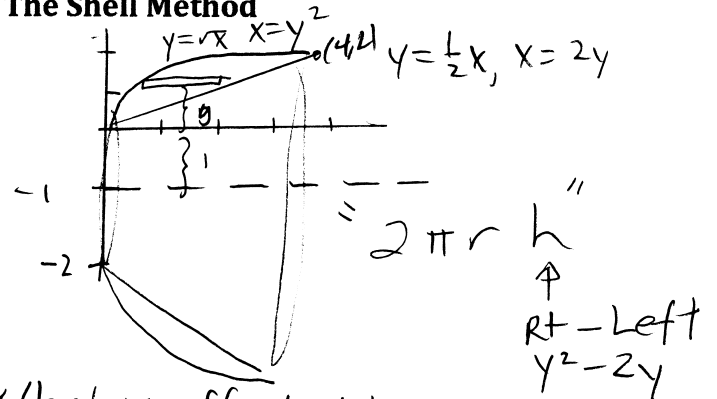 The Shell Method
y=√x x=y²
(4,2) y=½x, x=2y
y
1
-1
"2πr h"
-2
↑
Rt - Left
y²-2y